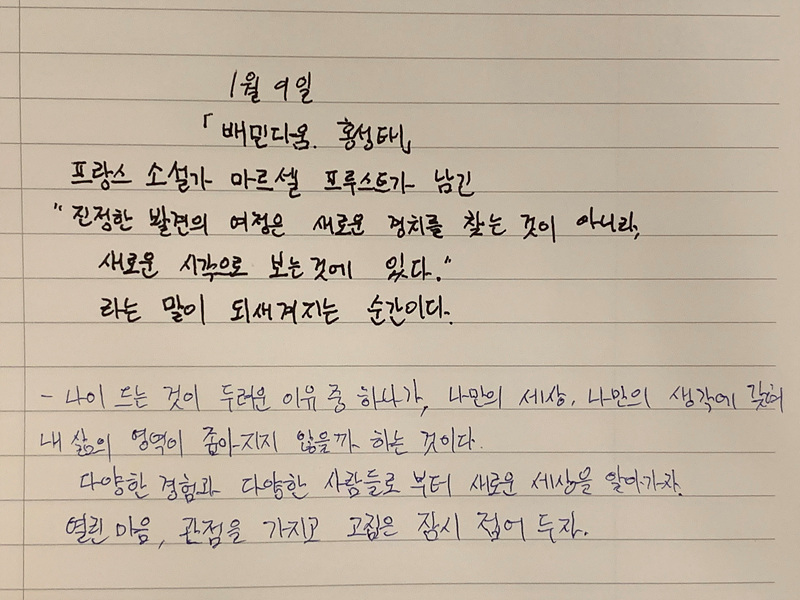 1월 9일
「배민다움. 홍성태」
프랑스 소설가 마르셀 프루스트가 남긴
"진정한 발견의 여정은 새로운 경치를 찾는 것이 아니라,
새로운 시각으로 보는것에 있다."
라는 말이 되새겨지는 순간이다.
- 나이 드는 것이 두려운 이유 중 하나가, 나만의 세상. 나만의 생각에 갖혀
내 삶의 영역이 좁아지지 않을까 하는 것이다.
다양한 경험과 다양한 사람들로 부터 새로운 세상을 알아가자.
열린 마음, 관점을 가지고 고집은 잠시 접어 두자.